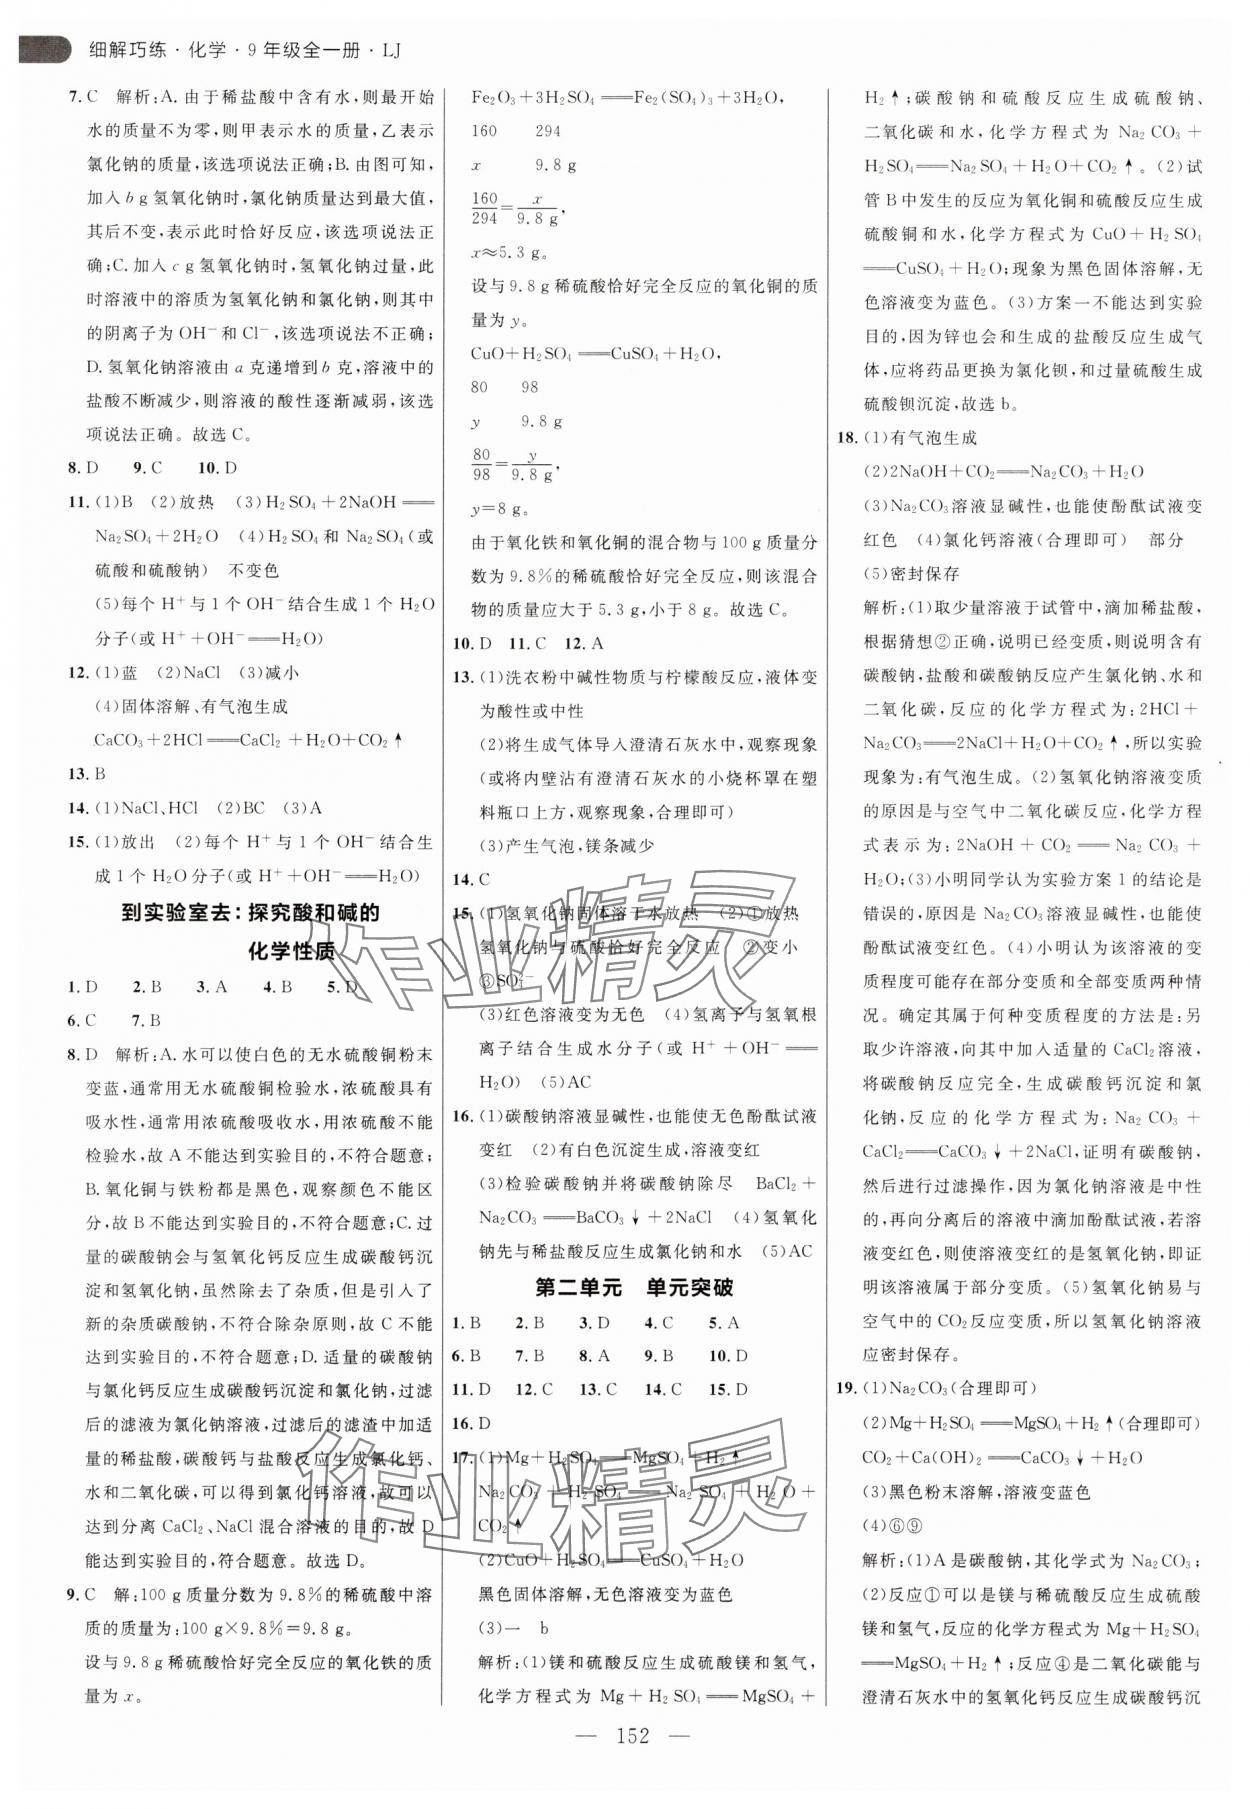 细解巧练·化学·9年级全一册·LJ
7. C　解析:A. 由于稀盐酸中含有水,则最开始
水的质量不为零,则甲表示水的质量,乙表示
氯化钠的质量,该选项说法正确;B. 由图可知,
加入 b g 氢氧化钠时,氯化钠质量达到最大值,
其后不变,表示此时恰好反应,该选项说法正
确;C. 加入 c g 氢氧化钠时,氢氧化钠过量,此
时溶液中的溶质为氢氧化钠和氯化钠,则其中
的阴离子为 OH⁻ 和 Cl⁻,该选项说法不正确;
D. 氢氧化钠溶液由 a 克递增到 b 克,溶液中的
盐酸不断减少,则溶液的酸性逐渐减弱,该选
项说法正确。故选 C。
8. D　9. C　10. D
11. (1)B　(2)放热　(3)H₂SO₄+2NaOH══
Na₂SO₄+2H₂O　(4)H₂SO₄ 和 Na₂SO₄(或
硫酸和硫酸钠)　不变色
(5)每个 H⁺ 与 1 个 OH⁻ 结合生成 1 个 H₂O
分子(或 H⁺+OH⁻══H₂O)
12. (1)蓝　(2)NaCl　(3)减小
(4)固体溶解、有气泡生成
CaCO₃+2HCl══CaCl₂+H₂O+CO₂↑
13. B
14. (1)NaCl、HCl　(2)BC　(3)A
15. (1)放出　(2)每个 H⁺ 与 1 个 OH⁻ 结合生
成 1 个 H₂O 分子(或 H⁺+OH⁻══H₂O)
到实验室去:探究酸和碱的
化学性质
1. D　2. B　3. A　4. B　5. D
6. C　7. B
8. D　解析:A. 水可以使白色的无水硫酸铜粉末
变蓝,通常用无水硫酸铜检验水,浓硫酸具有
吸水性,通常用浓硫酸吸收水,用浓硫酸不能
检验水,故 A 不能达到实验目的,不符合题意;
B. 氧化铜与铁粉都是黑色,观察颜色不能区
分,故 B 不能达到实验目的,不符合题意;C. 过
量的碳酸钠会与氢氧化钙反应生成碳酸钙沉
淀和氢氧化钠,虽然除去了杂质,但是引入了
新的杂质碳酸钠,不符合除杂原则,故 C 不能
达到实验目的,不符合题意;D. 适量的碳酸钠
与氯化钙反应生成碳酸钙沉淀和氯化钠,过滤
后的滤液为氯化钠溶液,过滤后的滤渣中加适
量的稀盐酸,碳酸钙与盐酸反应生成氯化钙、
水和二氧化碳,可以得到氯化钙溶液,故可以
达到分离 CaCl₂、NaCl 混合溶液的目的,故 D
能达到实验目的,符合题意。故选 D。
9. C　解:100 g 质量分数为 9.8%的稀硫酸中溶
质的质量为:100 g×9.8%=9.8 g。
设与 9.8 g 稀硫酸恰好完全反应的氧化铁的质
量为 x。
Fe₂O₃+3H₂SO₄══Fe₂(SO₄)₃+3H₂O,
160　294
x　9.8 g
160/294=x/9.8 g,
x≈5.3 g。
设与 9.8 g 稀硫酸恰好完全反应的氧化铜的质
量为 y。
CuO+H₂SO₄══CuSO₄+H₂O,
80　98
y　9.8 g
80/98=y/9.8 g,
y=8 g。
由于氧化铁和氧化铜的混合物与 100 g 质量分
数为 9.8%的稀硫酸恰好完全反应,则该混合
物的质量应大于 5.3 g,小于 8 g。故选 C。
10. D　11. C　12. A
13. (1)洗衣粉中碱性物质与柠檬酸反应,液体变
为酸性或中性
(2)将生成气体导入澄清石灰水中,观察现象
(或将内壁沾有澄清石灰水的小烧杯罩在塑
料瓶口上方,观察现象,合理即可)
(3)产生气泡,镁条减少
14. C
15. (1)氢氧化钠固体溶于水放热　(2)①放热
氢氧化钠与硫酸恰好完全反应　②变小
③SO₄²⁻
(3)红色溶液变为无色　(4)氢离子与氢氧根
离子结合生成水分子(或 H⁺+OH⁻══
H₂O)　(5)AC
16. (1)碳酸钠溶液显碱性,也能使无色酚酞试液
变红　(2)有白色沉淀生成,溶液变红
(3)检验碳酸钠并将碳酸钠除尽　BaCl₂+
Na₂CO₃══BaCO₃↓+2NaCl　(4)氢氧化
钠先与稀盐酸反应生成氯化钠和水　(5)AC
第二单元　单元突破
1. B　2. B　3. D　4. C　5. A
6. B　7. B　8. A　9. B　10. D
11. D　12. C　13. C　14. C　15. D
16. D
17. (1)Mg+H₂SO₄══MgSO₄+H₂↑
Na₂CO₃+H₂SO₄══Na₂SO₄+H₂O+
CO₂↑
(2)CuO+H₂SO₄══CuSO₄+H₂O
黑色固体溶解,无色溶液变为蓝色
(3)一　b
解析:(1)镁和硫酸反应生成硫酸镁和氢气,
化学方程式为 Mg+H₂SO₄══MgSO₄+
H₂↑;碳酸钠和硫酸反应生成硫酸钠、
二氧化碳和水,化学方程式为 Na₂CO₃+
H₂SO₄══Na₂SO₄+H₂O+CO₂↑。(2)试
管 B 中发生的反应为氧化铜和硫酸反应生成
硫酸铜和水,化学方程式为 CuO+H₂SO₄
══CuSO₄+H₂O;现象为黑色固体溶解,无
色溶液变为蓝色。(3)方案一不能达到实验
目的,因为锌也会和生成的盐酸反应生成气
体,应将药品更换为氯化钡,和过量硫酸生成
硫酸钡沉淀,故选 b。
18. (1)有气泡生成
(2)2NaOH+CO₂══Na₂CO₃+H₂O
(3)Na₂CO₃溶液显碱性,也能使酚酞试液变
红色　(4)氯化钙溶液(合理即可)　部分
(5)密封保存
解析:(1)取少量溶液于试管中,滴加稀盐酸,
根据猜想②正确,说明已经变质,则说明含有
碳酸钠,盐酸和碳酸钠反应产生氯化钠、水和
二氧化碳,反应的化学方程式为:2HCl+
Na₂CO₃══2NaCl+H₂O+CO₂↑,所以实验
现象为:有气泡生成。(2)氢氧化钠溶液变质
的原因是与空气中二氧化碳反应,化学方程
式表示为:2NaOH+CO₂══Na₂CO₃+
H₂O;(3)小明同学认为实验方案 1 的结论是
错误的,原因是 Na₂CO₃溶液显碱性,也能使
酚酞试液变红色。(4)小明认为该溶液的变
质程度可能存在部分变质和全部变质两种情
况。确定其属于何种变质程度的方法是:另
取少许溶液,向其中加入适量的 CaCl₂溶液,
将碳酸钠反应完全,生成碳酸钙沉淀和氯
化钠,反应的化学方程式为:Na₂CO₃+
CaCl₂══CaCO₃↓+2NaCl,证明有碳酸钠,
然后进行过滤操作,因为氯化钠溶液是中性
的,再向分离后的溶液中滴加酚酞试液,若溶
液变红色,则使溶液变红的是氢氧化钠,即证
明该溶液属于部分变质。(5)氢氧化钠易与
空气中的 CO₂反应变质,所以氢氧化钠溶液
应密封保存。
19. (1)Na₂CO₃(合理即可)
(2)Mg+H₂SO₄══MgSO₄+H₂↑(合理即可)
CO₂+Ca(OH)₂══CaCO₃↓+H₂O
(3)黑色粉末溶解,溶液变蓝色
(4)⑥⑨
解析:(1)A 是碳酸钠,其化学式为 Na₂CO₃;
(2)反应①可以是镁与稀硫酸反应生成硫酸
镁和氢气,反应的化学方程式为 Mg+H₂SO₄
══MgSO₄+H₂↑;反应④是二氧化碳能与
澄清石灰水中的氢氧化钙反应生成碳酸钙沉
— 152 —
作业精灵
作业精灵